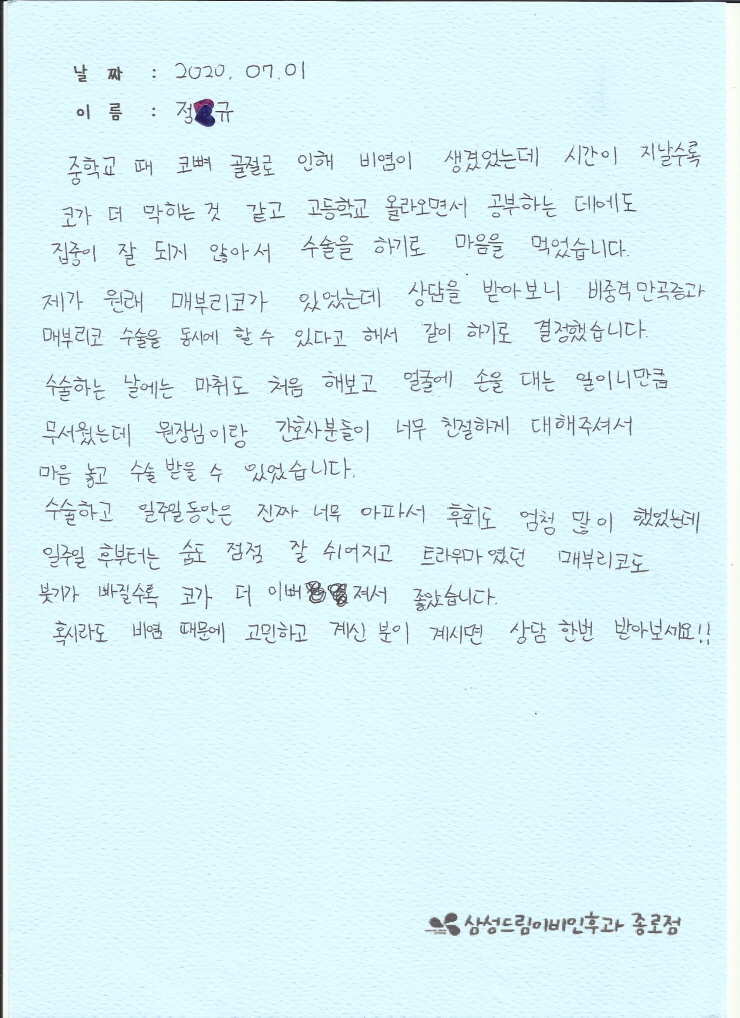 날 짜 : 2020. 07. 01
이 름 : 정 규
중학교 때 코뼈 골절로 인해 비염이 생겼었는데 시간이 지날수록
코가 더 막히는 것 같고 고등학교 올라오면서 공부하는 데에도
집중이 잘 되지 않아서 수술을 하기로 마음을 먹었습니다.
제가 원래 매부리코가 있었는데 상담을 받아보니 비중격만곡증과
매부리코 수술을 동시에 할 수 있다고 해서 같이 하기로 결정했습니다.
수술하는 날에는 마취도 처음 해보고 얼굴에 손을 대는 일이니만큼
무서웠는데 원장님이랑 간호사분들이 너무 친절하게 대해주셔서
마음 놓고 수술 받을 수 있었습니다.
수술하고 일주일동안은 진짜 너무 아파서 후회도 엄청 많이 했었는데
일주일 후부터는 숨도 점점 잘 쉬어지고 트라우마였던 매부리코도
붓기가 빠질수록 코가 더 이뻐져서 좋았습니다.
혹시라도 비염 때문에 고민하고 계신 분이 계시면 상담 한번 받아보세요!!
삼성드림이비인후과 종로점